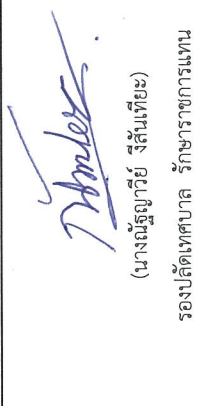 (นางณัฐญาวีย์ งีสันเทียะ)
รองปลัดเทศบาล รักษาราชการแทน